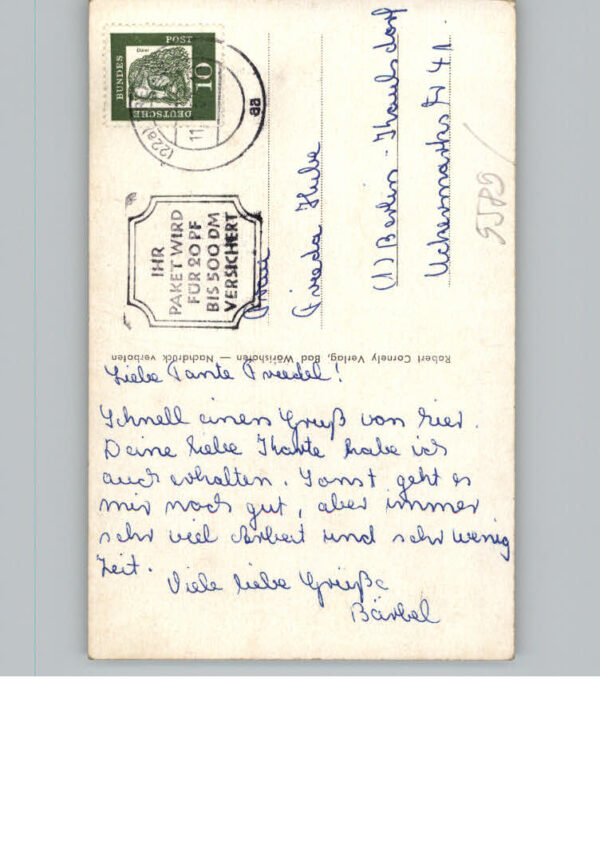 DEUTSCHE
BUNDES
POST
10
(22a)
11
aa
IHR
PAKET WIRD
FÜR 20 PF
BIS 500 DM
VERSICHERT
Frau
Frieda
(1) Berlin-Kaulsdorf
Uckermarkstr 41.
5589
Robert Cornely Verlag, Bad Wörishofen — Nachdruck verboten
Liebe Tante Friedel!
Schnell einen Gruß von hier.
Deine liebe Karte habe ich
auch erhalten. Sonst geht es
mir noch gut, aber immer
sehr viel Arbeit und sehr wenig
Zeit.
Viele liebe Grüße
Bärbel